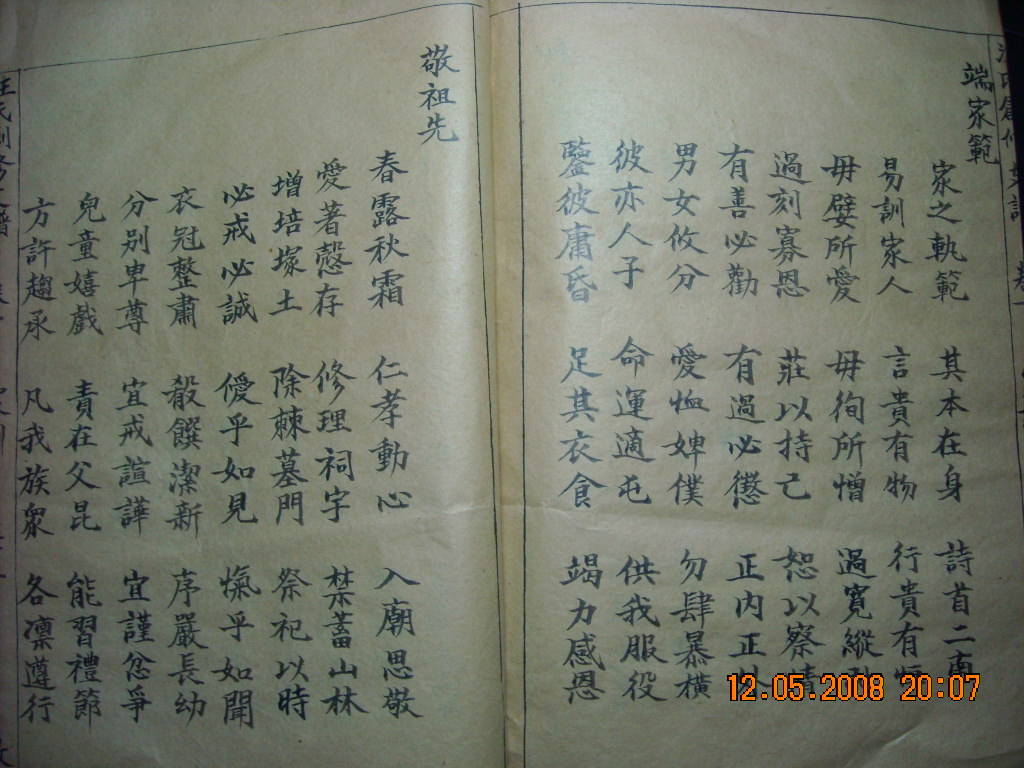 端家範
家之軌範 其本在身 詩首二南
易訓家人 言貴有物 行貴有恒
毋嬖所愛 毋徇所憎 過寬縱
過刻寡恩 莊以持己 恕以察情
有善必勸 有過必懲 正內正外
男女攸分 愛恤婢僕 勿肆暴橫
彼亦人子 命運適屯 供我服役
鑒彼庸昏 足其衣食 竭力感恩
敬祖先
春露秋霜 仁孝動心 入廟思敬
愛著慤存 修理祠宇 禁蓄山林
增培塚土 除棘墓門 祭祀以時
必戒必誠 僾乎如見 愾乎如聞
衣冠整肅 殽饌潔新 序嚴長幼
分别卑尊 宜戒諠譁 宜謹忿爭
兒童嬉戲 責在父昆 能習禮節
方許趨承 凡我族衆 各凛遵行
汪氏創修
12.05.2008 20:07